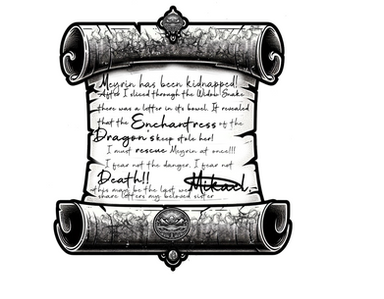 Meyrin has been kidnapped!
After I sliced through the Widow Snake
there was a letter in its bowel. It revealed
that the Enchantress of the
Dragon's keep stole her!
I must rescue Meyrin at once!!!
I fear not the danger, I fear not
Death!!
this may be the last we
share letters my beloved sister
Mikael